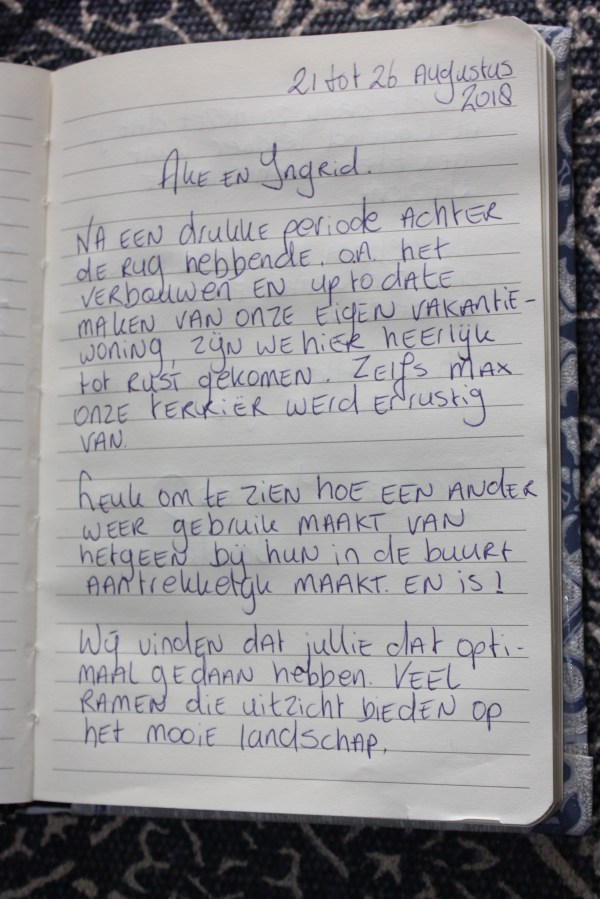 21 tot 26 Augustus
2018
Ake en Yngrid.
NA EEN drukke periode ACHTER
de Rug hebbende. o.a. het
verbouwen EN up to date
maken VAN onze Eigen VAKANTIE-
woning, zijn we hier heerlijk
tot RUST gekomen. Zelfs MAX
onze terriër werd er rustig
VAN.
Leuk om te zien hoe EEN ANDER
WEER gebruik MAAKT VAN
hetgeen bij hun in de buurt
AANtrekkelijk MAAKT. EN is!
Wij vinden dat jullie dat opti-
MAAL gedaan hebben. VEEL
RAMEN die uitzicht bieden op
het mooie landschap.